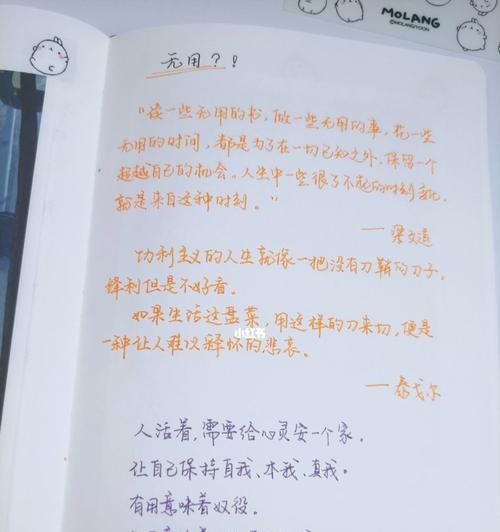 MOLANG
©MOLANG/YOON
无用？！
“读一些无用的书，做一些无用的事，花一些
无用的时间，都是为了在一切已知之外，保留一个
超越自己的机会。人生中一些很了不起的时刻变化，
就是来自这种时刻。”
—梁文道
功利主义的人生就像一把没有刀鞘的刀子，
锋利但是不好看。
如果生活这盘菜，用这样的刀来切，便是
一种让人难以释怀的悲哀。
小红书
—泰戈尔
人活着，需要给心灵安一个家。
让自己保持自我、本我、真我。
有用意味着奴役。